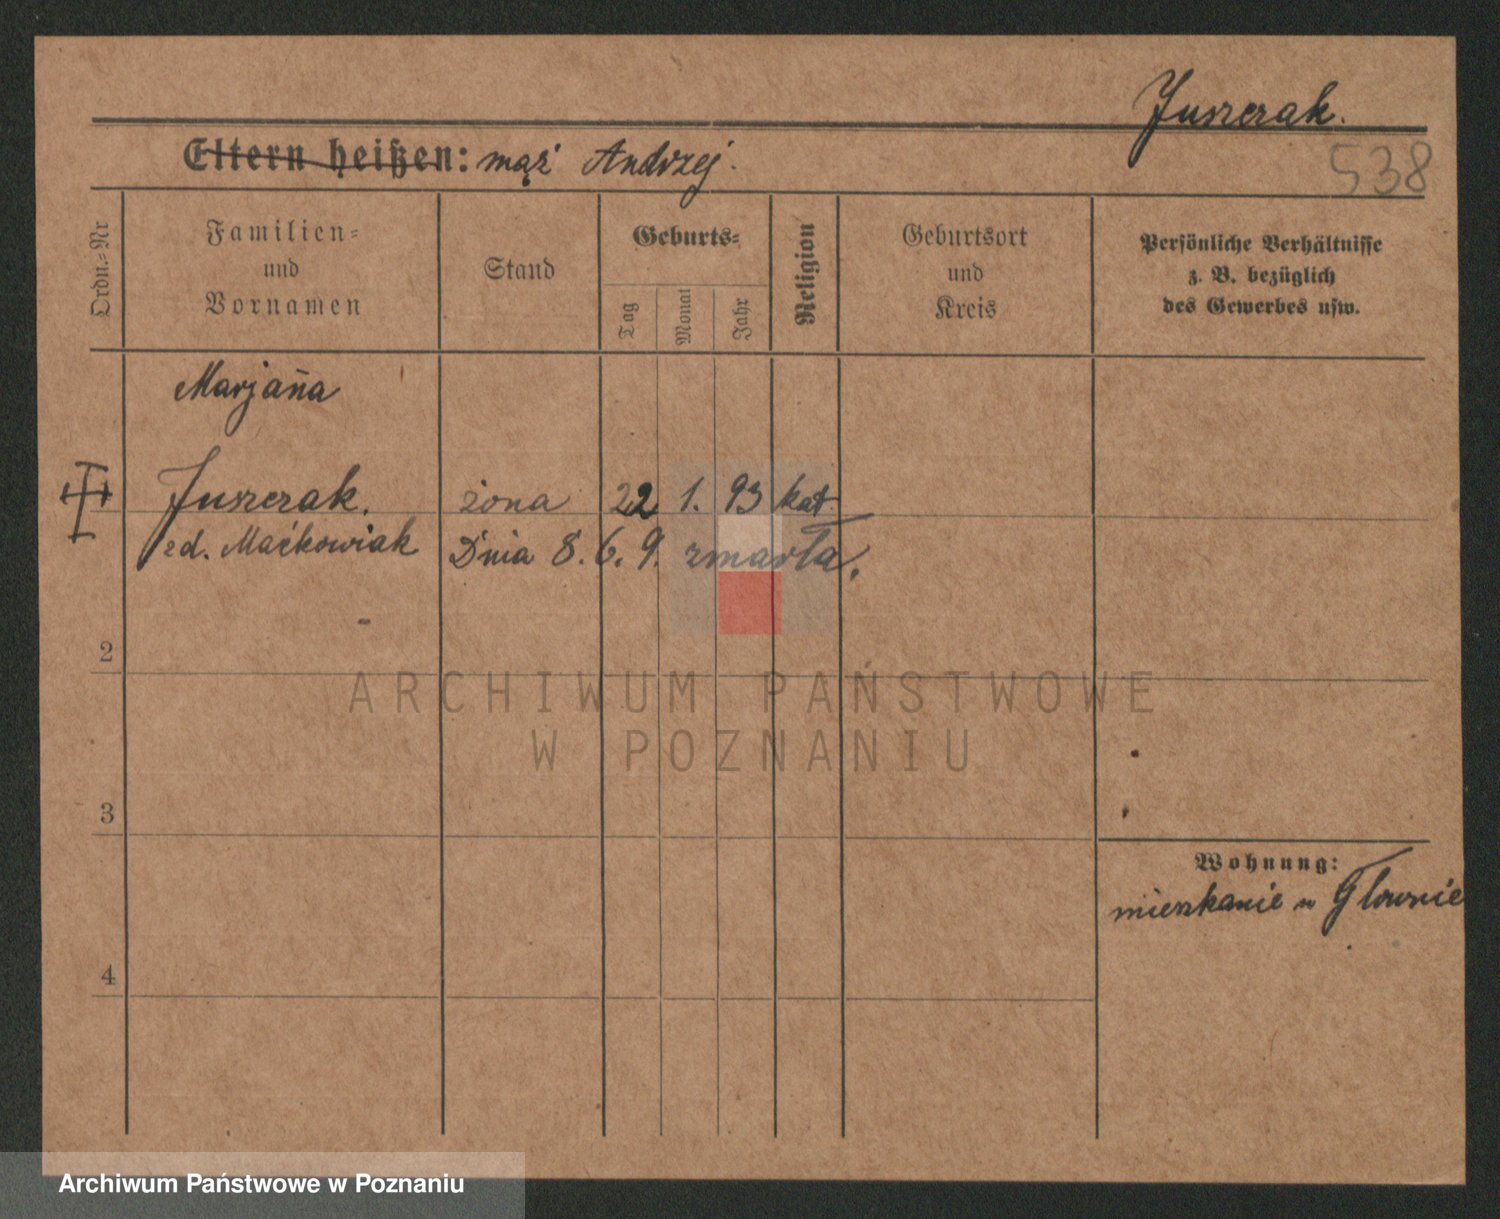 Juszczak.
538
Eltern heißen: mąż Andrzej.
Ordn.-Nr
Familien-
und
Vornamen
Stand
Geburts-
Tag
Monat
Jahr
Religion
Geburtsort
und
Kreis
Persönliche Verhältnisse
z. B. bezüglich
des Gewerbes usw.
Marjanna
Juszczak. żona 22 1. 93 kat.
zd. Maćkowiak Dnia 8. 6. 9. zmarła.
2
ARCHIWUM PAŃSTWOWE
W POZNANIU
3
Wohnung:
mieszkanie w Głownie
4
Archiwum Państwowe w Poznaniu